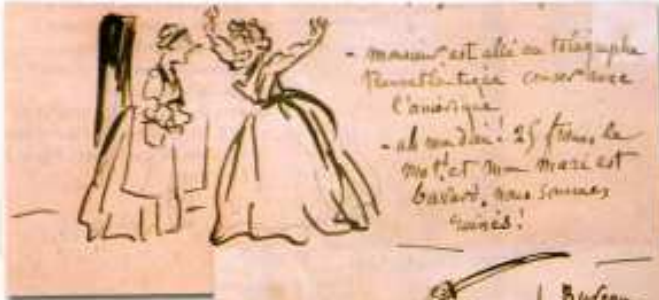 - monsieur est allé au télégraphe
causer avec
l'amérique
- ah mon dieu! 25 francs le
mot! et mon mari est
bavard, nous sommes
ruinés!